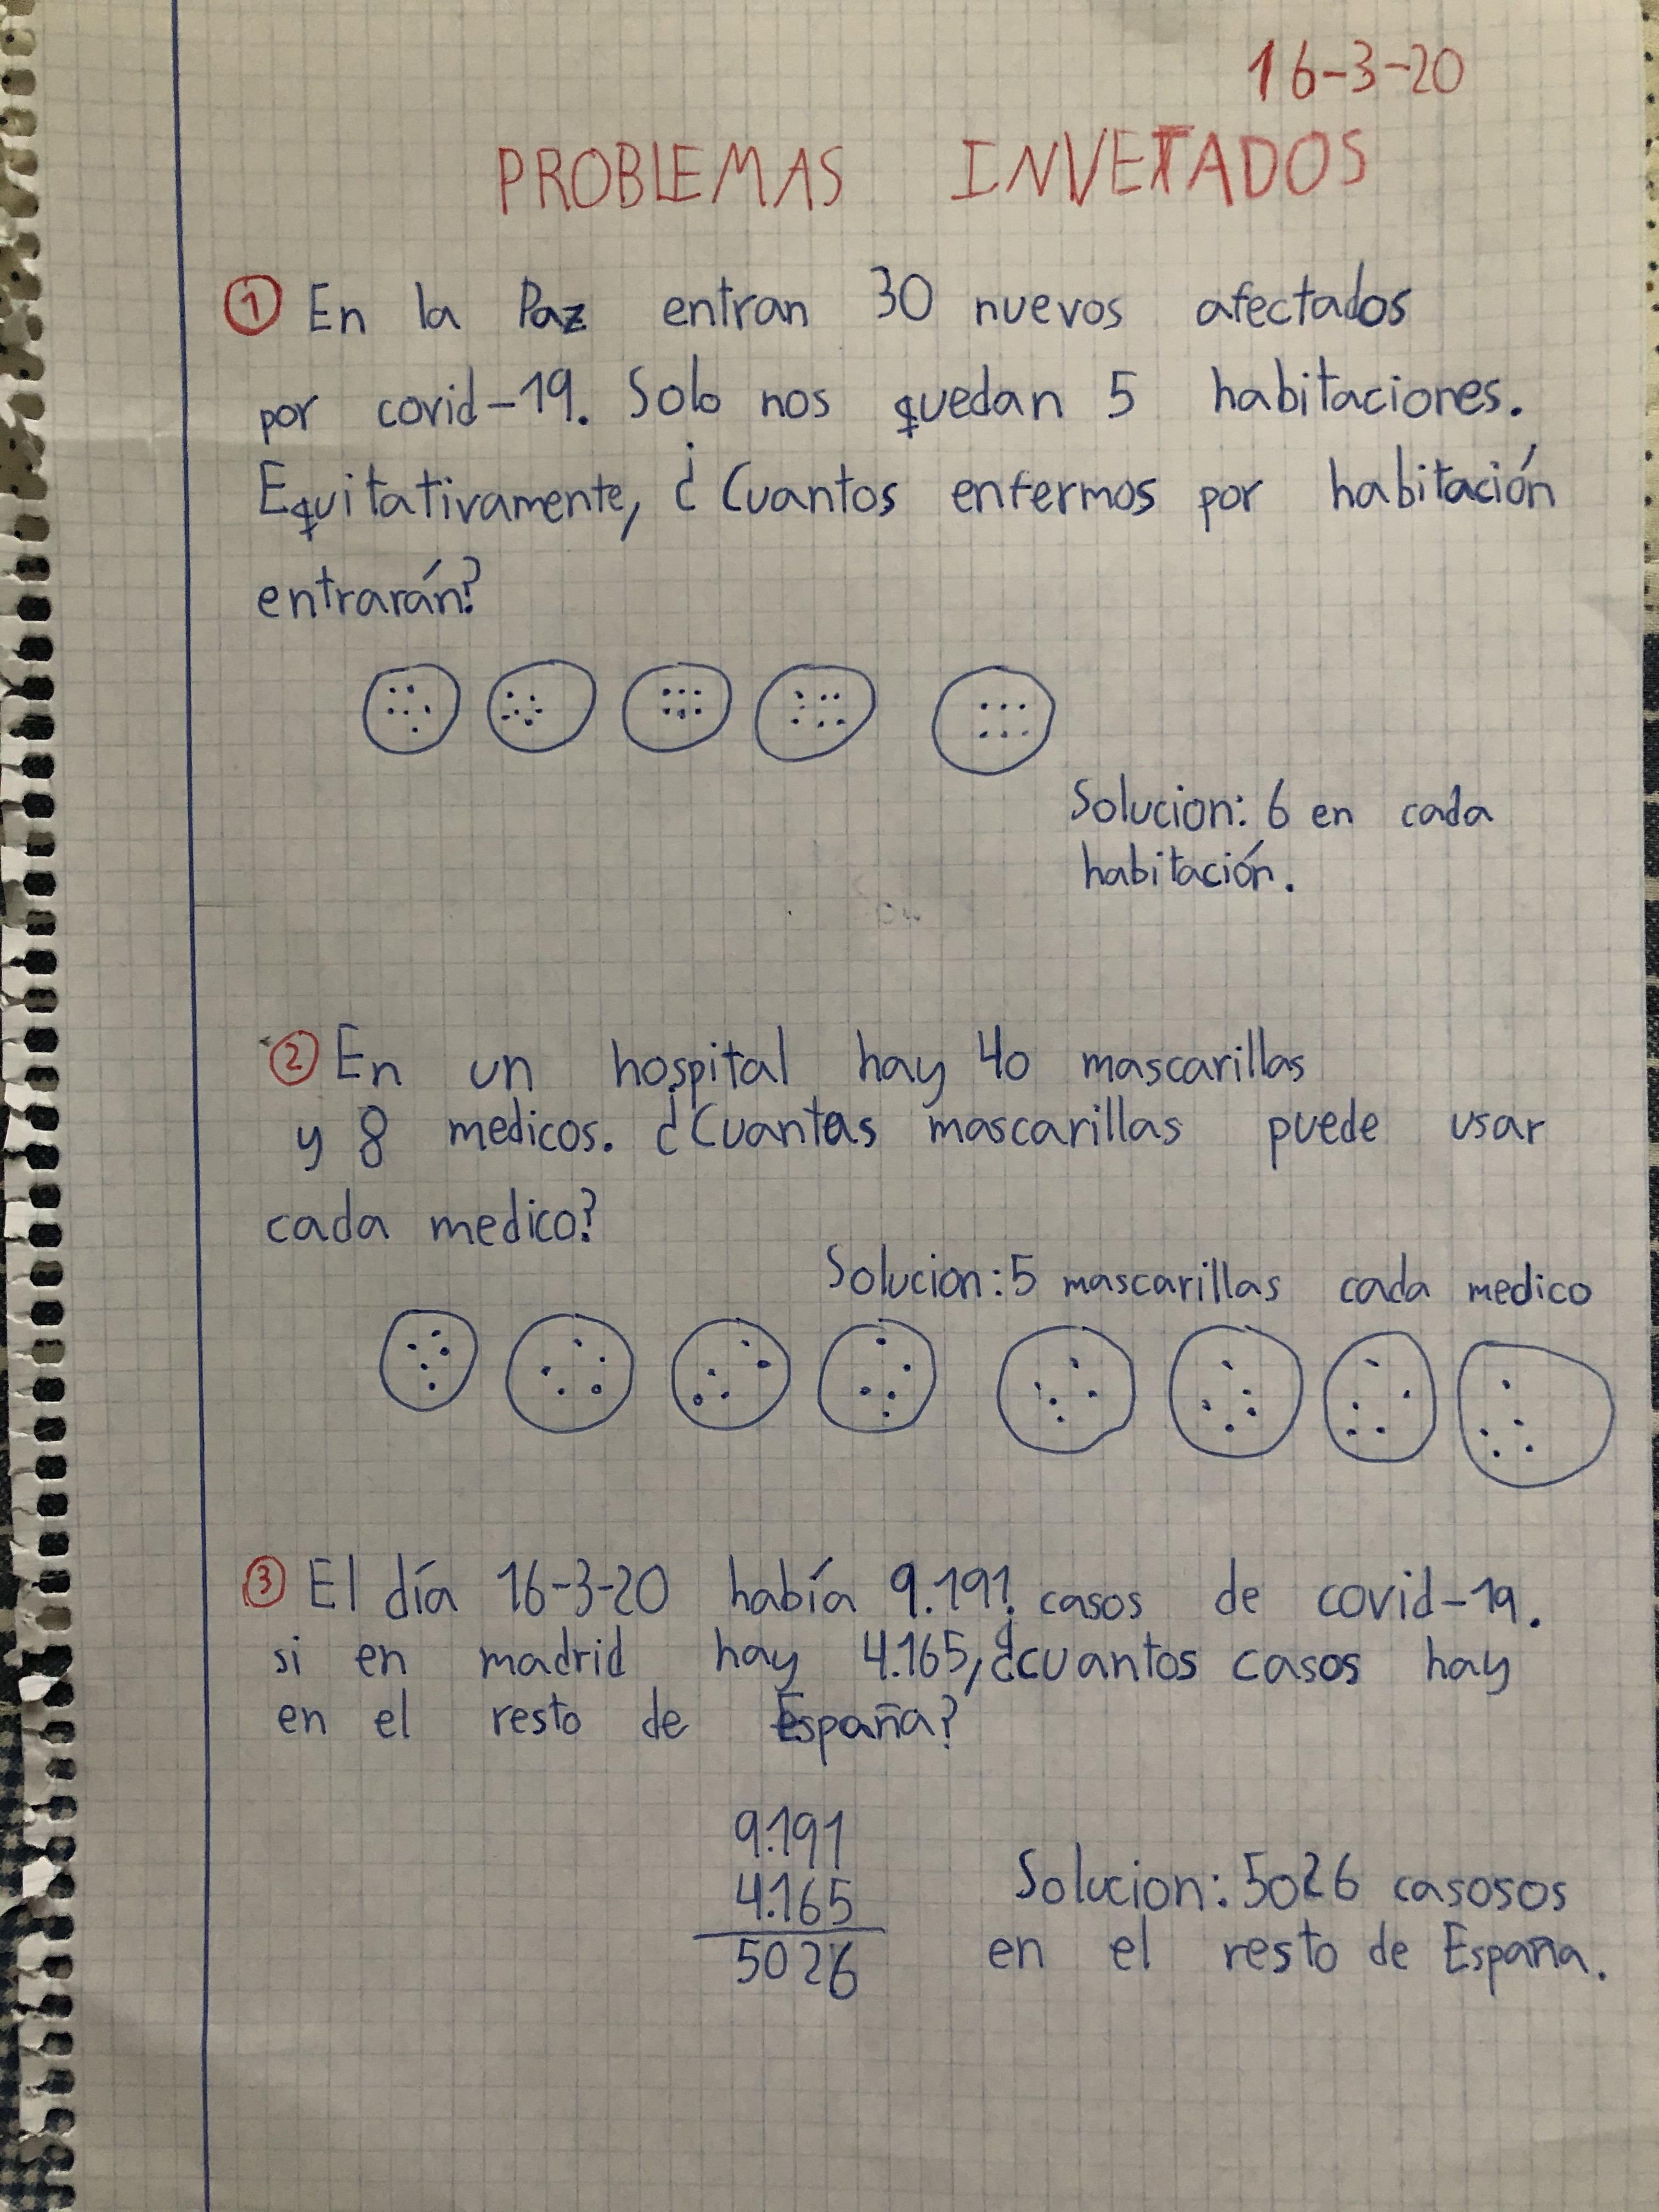 16-3-20
PROBLEMAS INVETADOS
① En la Paz entran 30 nuevos afectados
por covid-19. Solo nos quedan 5 habitaciones.
Equitativamente, ¿Cuantos enfermos por habitación
entrarán?
Solucion: 6 en cada
habitación.
② En un hospital hay 40 mascarillas
y 8 medicos. ¿Cuantas mascarillas puede usar
cada medico?
Solucion: 5 mascarillas cada medico
③ El día 16-3-20 había 9.191 casos de covid-19.
si en madrid hay 4.165, ¿cuantos casos hay
en el resto de España?
9.191
4.165
5026
Solucion: 5026 casosos
en el resto de España.